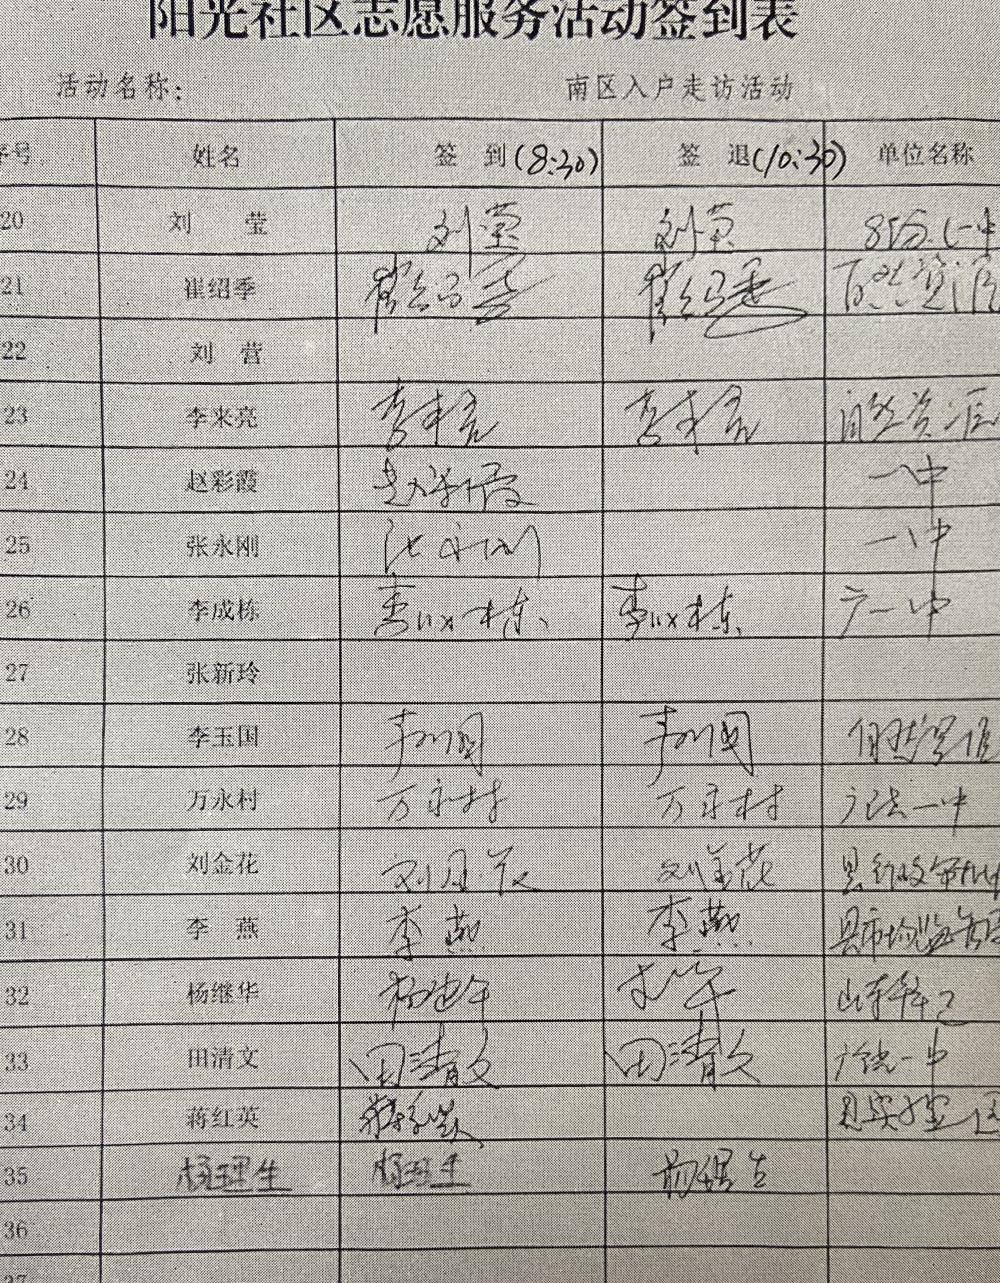 阳光社区志愿服务活动签到表
活动名称: 南区入户走访活动
序号 姓名 签 到(8:30) 签 退(10:30) 单位名称
20 刘 莹 刘莹 刘莹
21 崔绍季 崔绍季 崔绍季
22 刘 营
23 李来亮 李来亮 李来亮 自然资源
24 赵彩霞 赵彩霞 一中
25 张永刚 张永刚 一中
26 李成栋 李成栋 李成栋 广一中
27 张新玲
28 李玉国 李玉国 李玉国 自然资源
29 万永村 万永村 万永村 一中
30 刘金花 刘金花 刘金花
31 李 燕 李燕 李燕 县市场监管局
32 杨继华 杨继华
33 田清文 田清文 田清文 一中
34 蒋红英 蒋红英
35 杨理生 杨理生
36
37